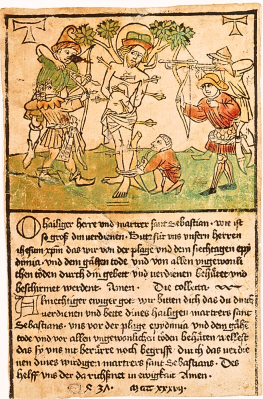 O hailiger herre und martrer sant Sebastian. wie ist
so groß din verdienen. Bitt für uns unsern herren
das wir von der plage und dem
und dem gähen tode und von allen ungewonli
chen töden durch din gebett und verdienen behütet und
beschirmet werdent. Amen. Die collecta
Almechtiger ewiger got. wir bitten dich das du durch
verdienen und bette dines hailigen martrers sant
Sebastians. uns vor der plage epydimia und dem gähen
tode und vor allen ungewonlichen töden behüten wellest
das sy uns nit berüre noch begriff. durch das verdie
nen dines würdigen martrers sant Sebastians. Des
helff uns der da richsnet in ewigkait Amen.